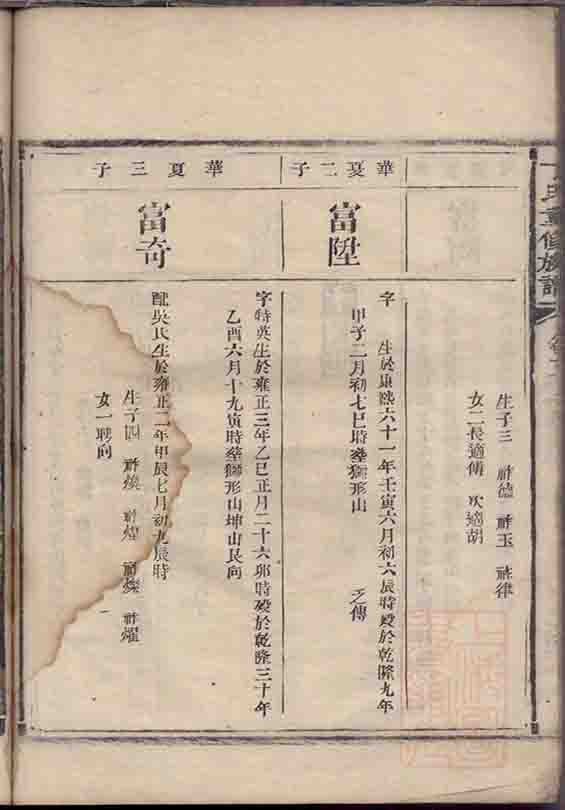 氏重修族譜
卷
生子三 祚德 祚玉 祚律
女二長適傅 次適胡
華夏二子
富陞
字 生於康熙六十一年壬寅六月初六辰時歿於乾隆九年
甲子二月初七巳時塟獅形山 乏傳
華夏三子
富奇
字特英生於雍正三年乙巳正月二十六卯時歿於乾隆三十年
乙酉六月十九寅時塟獅形山坤山艮向
配吳氏生於雍正二年甲辰七月初九辰時
生子四 祚燦 祚煌 祚燦 祚耀
女一聘向